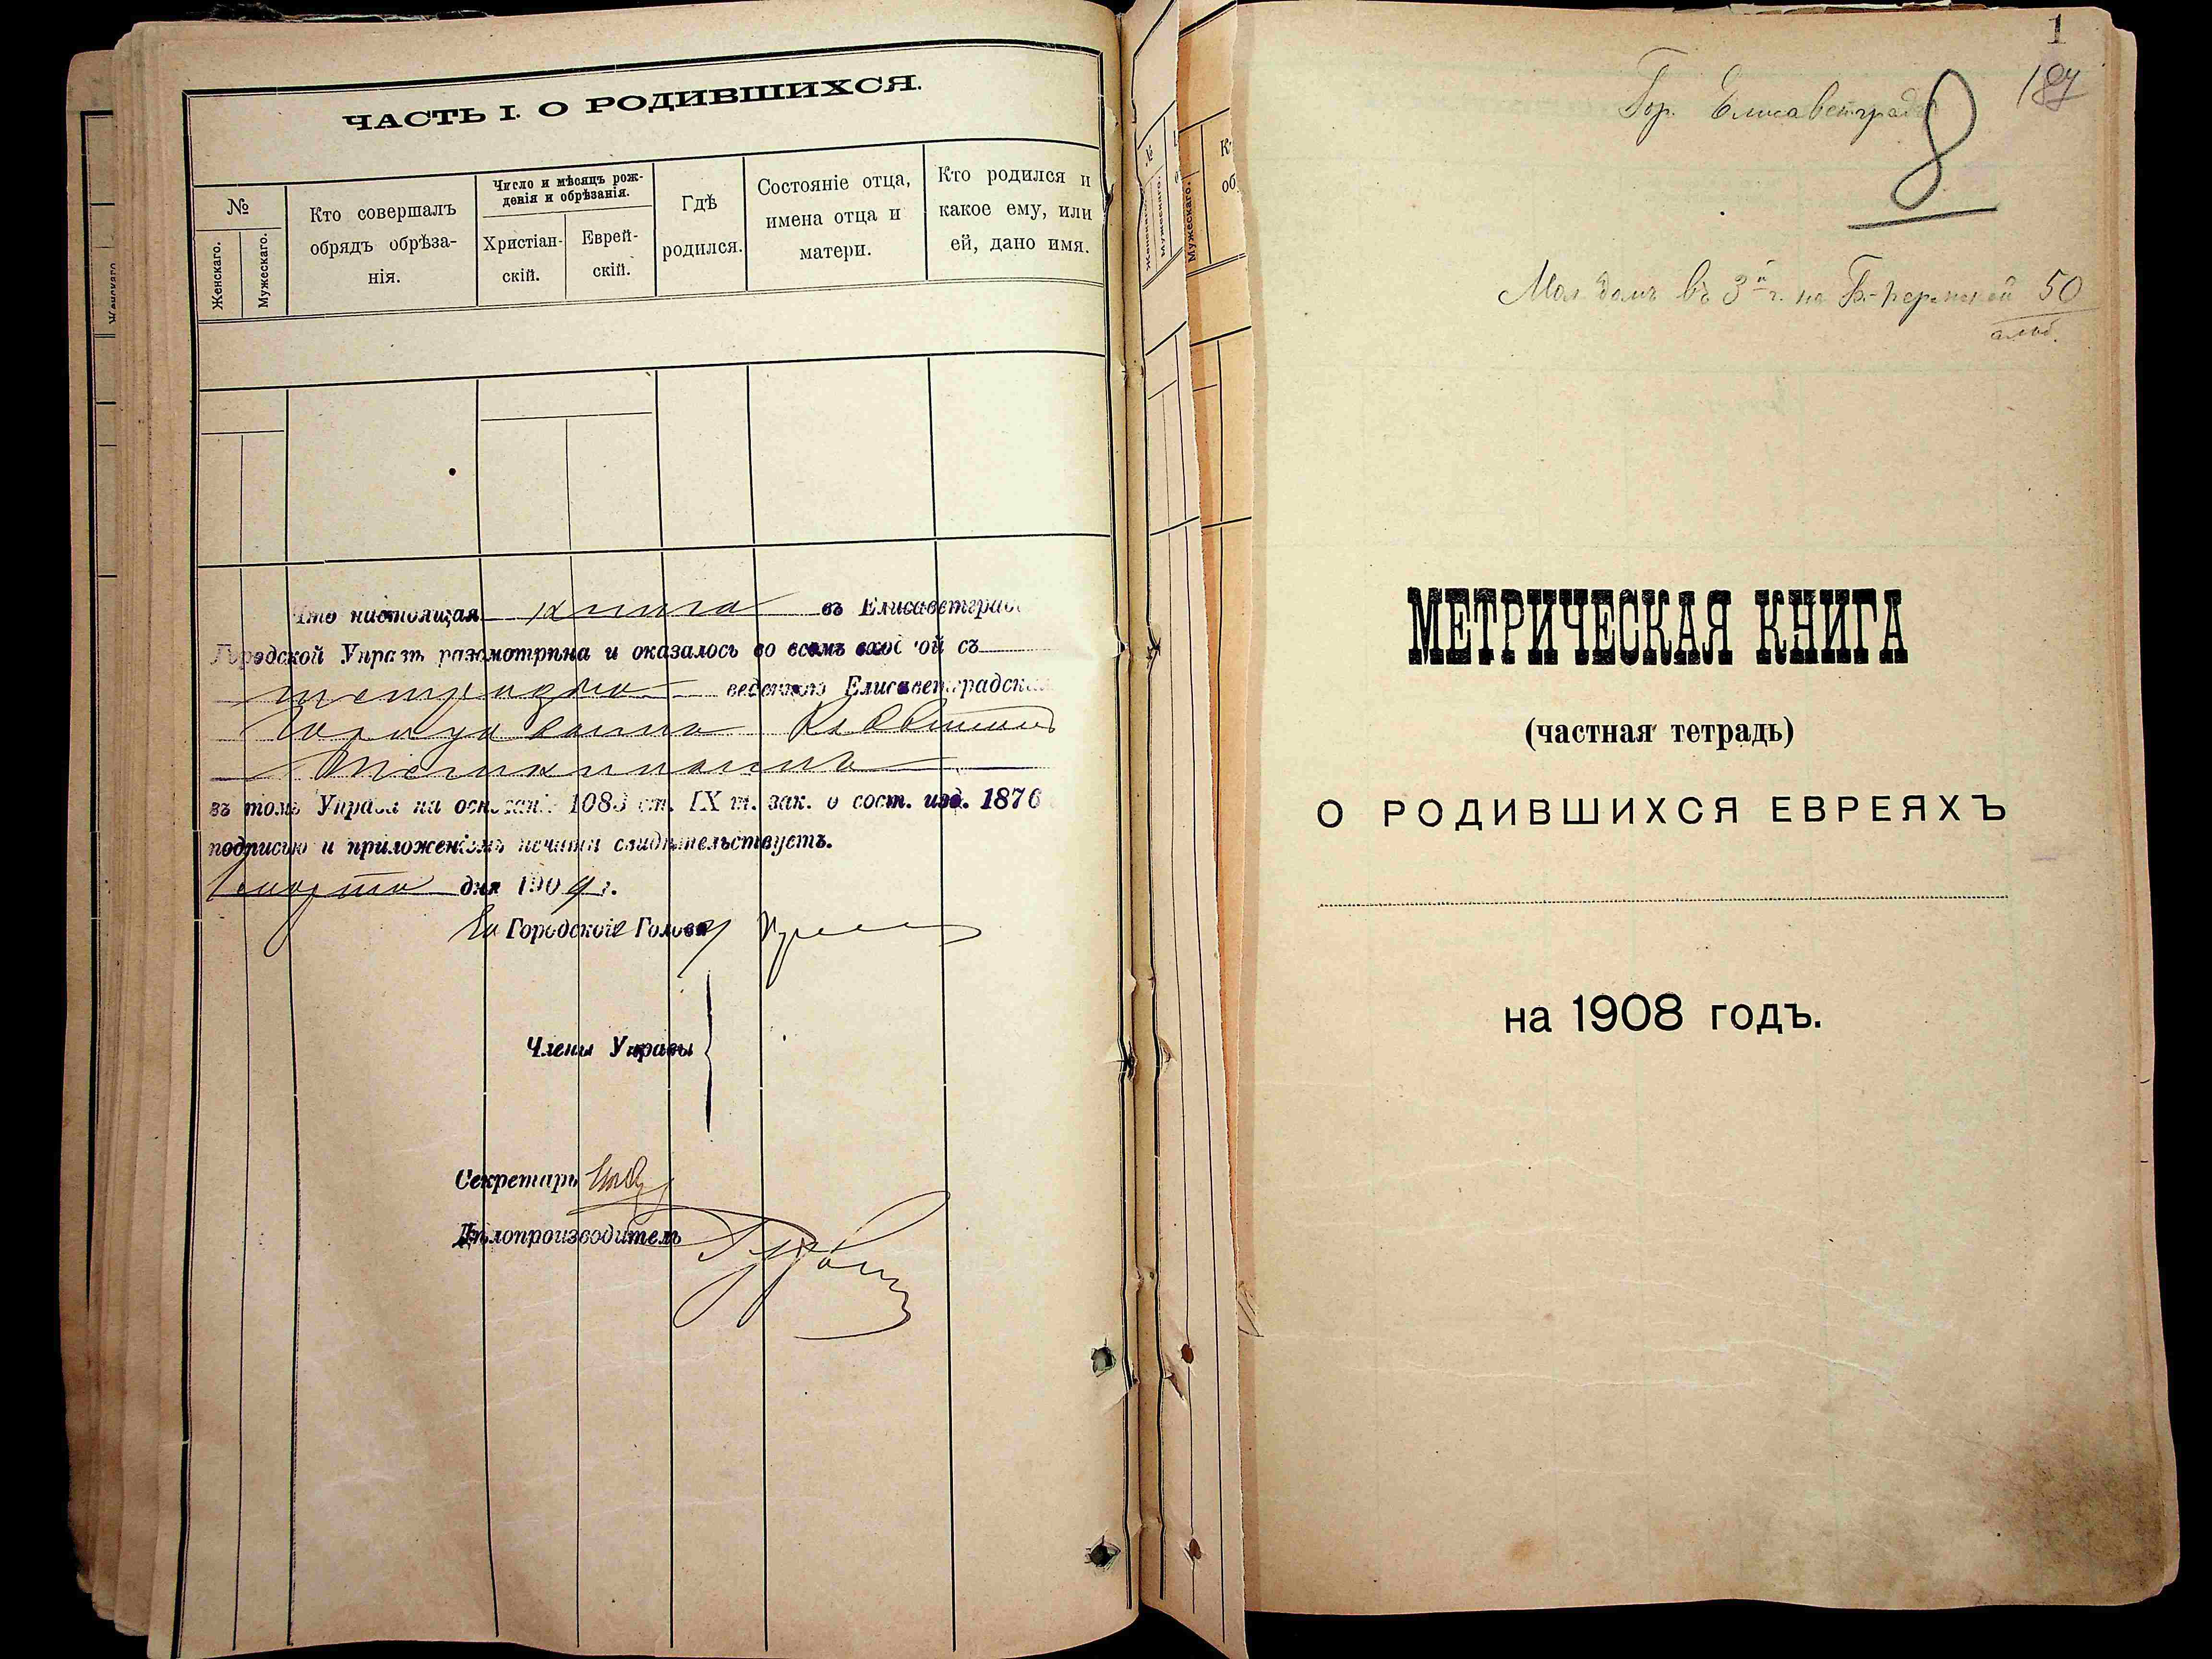 ЧАСТЬ I. О РОДИВШИХСЯ.
№
Женскаго.
Мужескаго.
Кто совершалъ
обрядъ обрѣза-
нія.
Число и мѣсяцъ рож-
денія и обрѣзанія.
Христіан-
скій.
Еврей-
скій.
Гдѣ
родился.
Состояніе отца,
имена отца и
матери.
Кто родился и
какое ему, или
ей, дано имя.
Что настоящая книга въ Елисаветград
Городской Управѣ разсмотрѣна и оказалось во всемъ сход ой съ
тетрадью веденною Елисаветградск
въ томъ Управа на основаніи 1083 ст. IX т. зак. о сост. изд. 1876
подписью и приложеніемъ печати свидѣтельствуетъ.
марта дня 1909 г.
За Городского Голову
Члены Управы
Секретарь
Дѣлопроизводитель
Женскаго.
Мужескаго.
Мужескаго.
1
187
Гор. Елисаветград
8
Мол домъ въ 3й ч. на Б-Пермской 50
МЕТРИЧЕСКАЯ КНИГА
(частная тетрадь)
О РОДИВШИХСЯ ЕВРЕЯХЪ
на 1908 годъ.